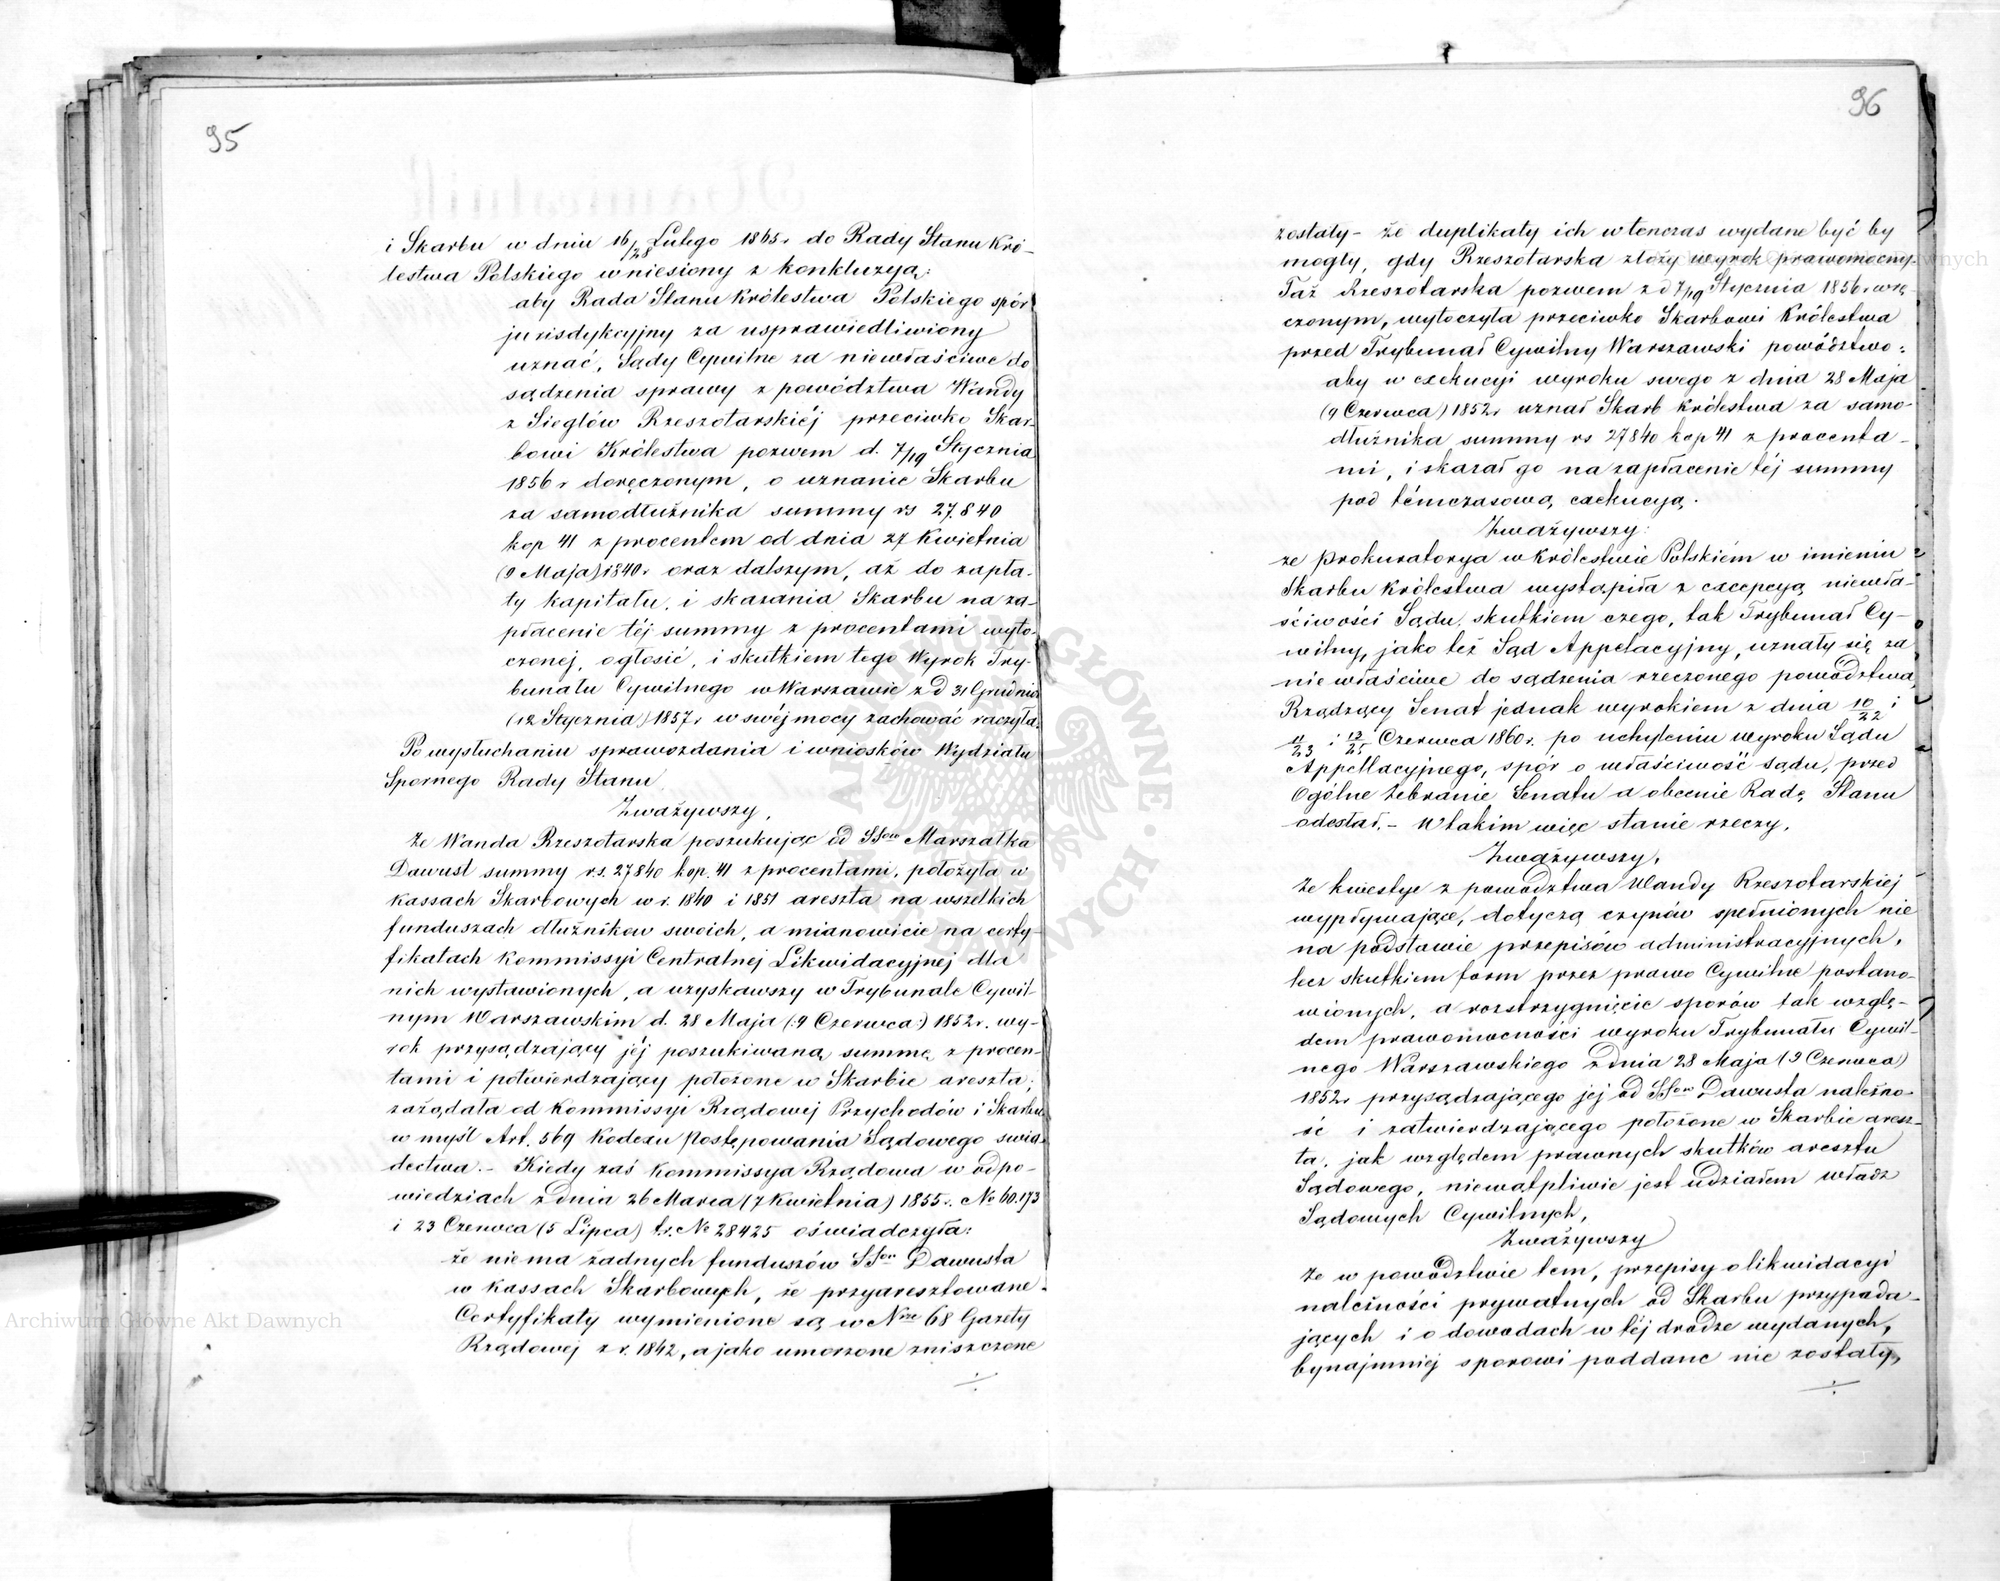 95
i Skarbu w dniu 16/28 Lutego 1865r do Rady Stanu Kró-
lestwa Polskiego wniesiony z konkluzyą:
aby Rada Stanu Królestwa Polskiego spór
jurisdykcyjny za usprawiedliwiony
uznać, Sądy Cywilne za niewłaściwe do
sądzenia sprawy z powództwa Wandy
z Sieglów Rzeszotarskiéj przeciwko Skar-
bowi Królestwa pozwem d. 7/19 Stycznia
1856 r doręczonym, o uznanie Skarbu
za samodłużnika summy rs 27840
kop 41 z procentem od dnia 27 Kwietnia
(9 Maja) 1840r oraz dalszym, aż do zapła-
ty kapitału, i skazania Skarbu na za-
płacenie téj summy z procentami wyto-
czonej, ogłosić, i skutkiem tego Wyrok Try-
bunału Cywilnego w Warszawie z d 31 Grudnia
(12 Stycznia) 1857r w swéj mocy zachować raczyła.
Po wysłuchaniu sprawozdania i wniosków Wydziału
Spornego Rady Stanu
Zważywszy,
Że Wanda Rzeszotarska poszukując od SSow Marszałka
Dawust summy rs. 27840 kop. 41 z procentami, położyła w
Kassach Skarbowych w r. 1840 i 1851 areszta na wszelkich
funduszach dłużników swoich, a mianowicie na certy-
fikatach Kommissyi Centralnej Likwidacyjnej dla
nich wystawionych, a uzyskawszy w Trybunale Cywil-
nym Warszawskim d. 28 Maja (:9 Czerwca:) 1852r. wy-
rok przysądzający jéj poszukiwaną summę z procen-
tami i potwierdzający położone w Skarbie areszta;
zażądała od Kommissyi Rządowej Przychodów i Skarbu
w myśl Art. 569 Kodexu Postępowania Sądowego świa-
dectwa. - Kiedy zaś Kommissya Rządowa w odpo-
wiedziach z dnia 26 Marca (7 Kwietnia) 1855r. No 60.173
i 23 Czerwca (5 Lipca) t.r. No 28425 oświadczyła:
że niema żadnych funduszów SSow Dawusta
w Kassach Skarbowych, że przyaresztowane
Certyfikaty wymienione są w Nrze 68 Gazety
Rządowej z r. 1842, a jako umorzone zniszczone
96
zostały - że duplikaty ich wtenczas wydane być by
mogły, gdy Rzeszotarska złoży wyrok prawomocny.
Taż Rzeszotarska pozwem z d 7/19 Stycznia 1856r wrę
czonym, wytoczyła przeciwko Skarbowi Królestwa
przed Trybunał Cywilny Warszawski powództwo:
aby w exekucyi wyroku swego z dnia 28 Maja
(9 Czerwca) 1852r uznał Skarb Królestwa za samo-
dłużnika summy rs 27840 kop 41 z procenta-
mi, i skazał go na zapłacenie téj summy
pod témczasową exekucyą.
Zważywszy:
że Prokuratorya w Królestwie Polskiém w imieniu
Skarbu Królestwa wystąpiła z excepcyą niewła-
ściwości Sądu, skutkiem czego, tak Trybunał Cy-
wilny, jako też Sąd Appelacyjny, uznały się za
niewłaściwe do sądzenia rzeczonego powództwa,
Rządzący Senat jednak wyrokiem z dnia 10/22 i
11/23 i 13/25 Czerwca 1860r. po uchyleniu wyroku Sądu
Appellacyjnego, spór o właściwość sądu, przed
Ogólne Zebranie Senatu a obecnie Radę Stanu
odesłał. - W takim więc stanie rzeczy,
Zważywszy,
Że kwestye z powództwa Wandy Rzeszotarskiej
wypływające, dotyczą czynów spełnionych nie
na podstawie przepisów administracyjnych,
lecz skutkiem form przez prawo Cywilne postano-
wionych, a rozstrzygnięcie sporów tak wzglę-
dem prawomocności wyroku Trybunału Cywil-
nego Warszawskiego z dnia 28 Maja (9 Czerwca)
1852r przysądzającego jej od SSow Dawusta należno-
ść i zatwierdzającego położone w Skarbie aresz-
ta, jak względem prawnych skutków aresztu
Sądowego, niewątpliwie jest udziałem władz
Sądowych Cywilnych,
Zważywszy
że w powództwie tem, przepisy o likwidacyi
należności prywatnych od Skarbu przypada-
jących i o dowodach w téj drodze wydanych,
bynajmniej sporowi poddane nie zostały,
Archiwum Główne Akt Dawnych